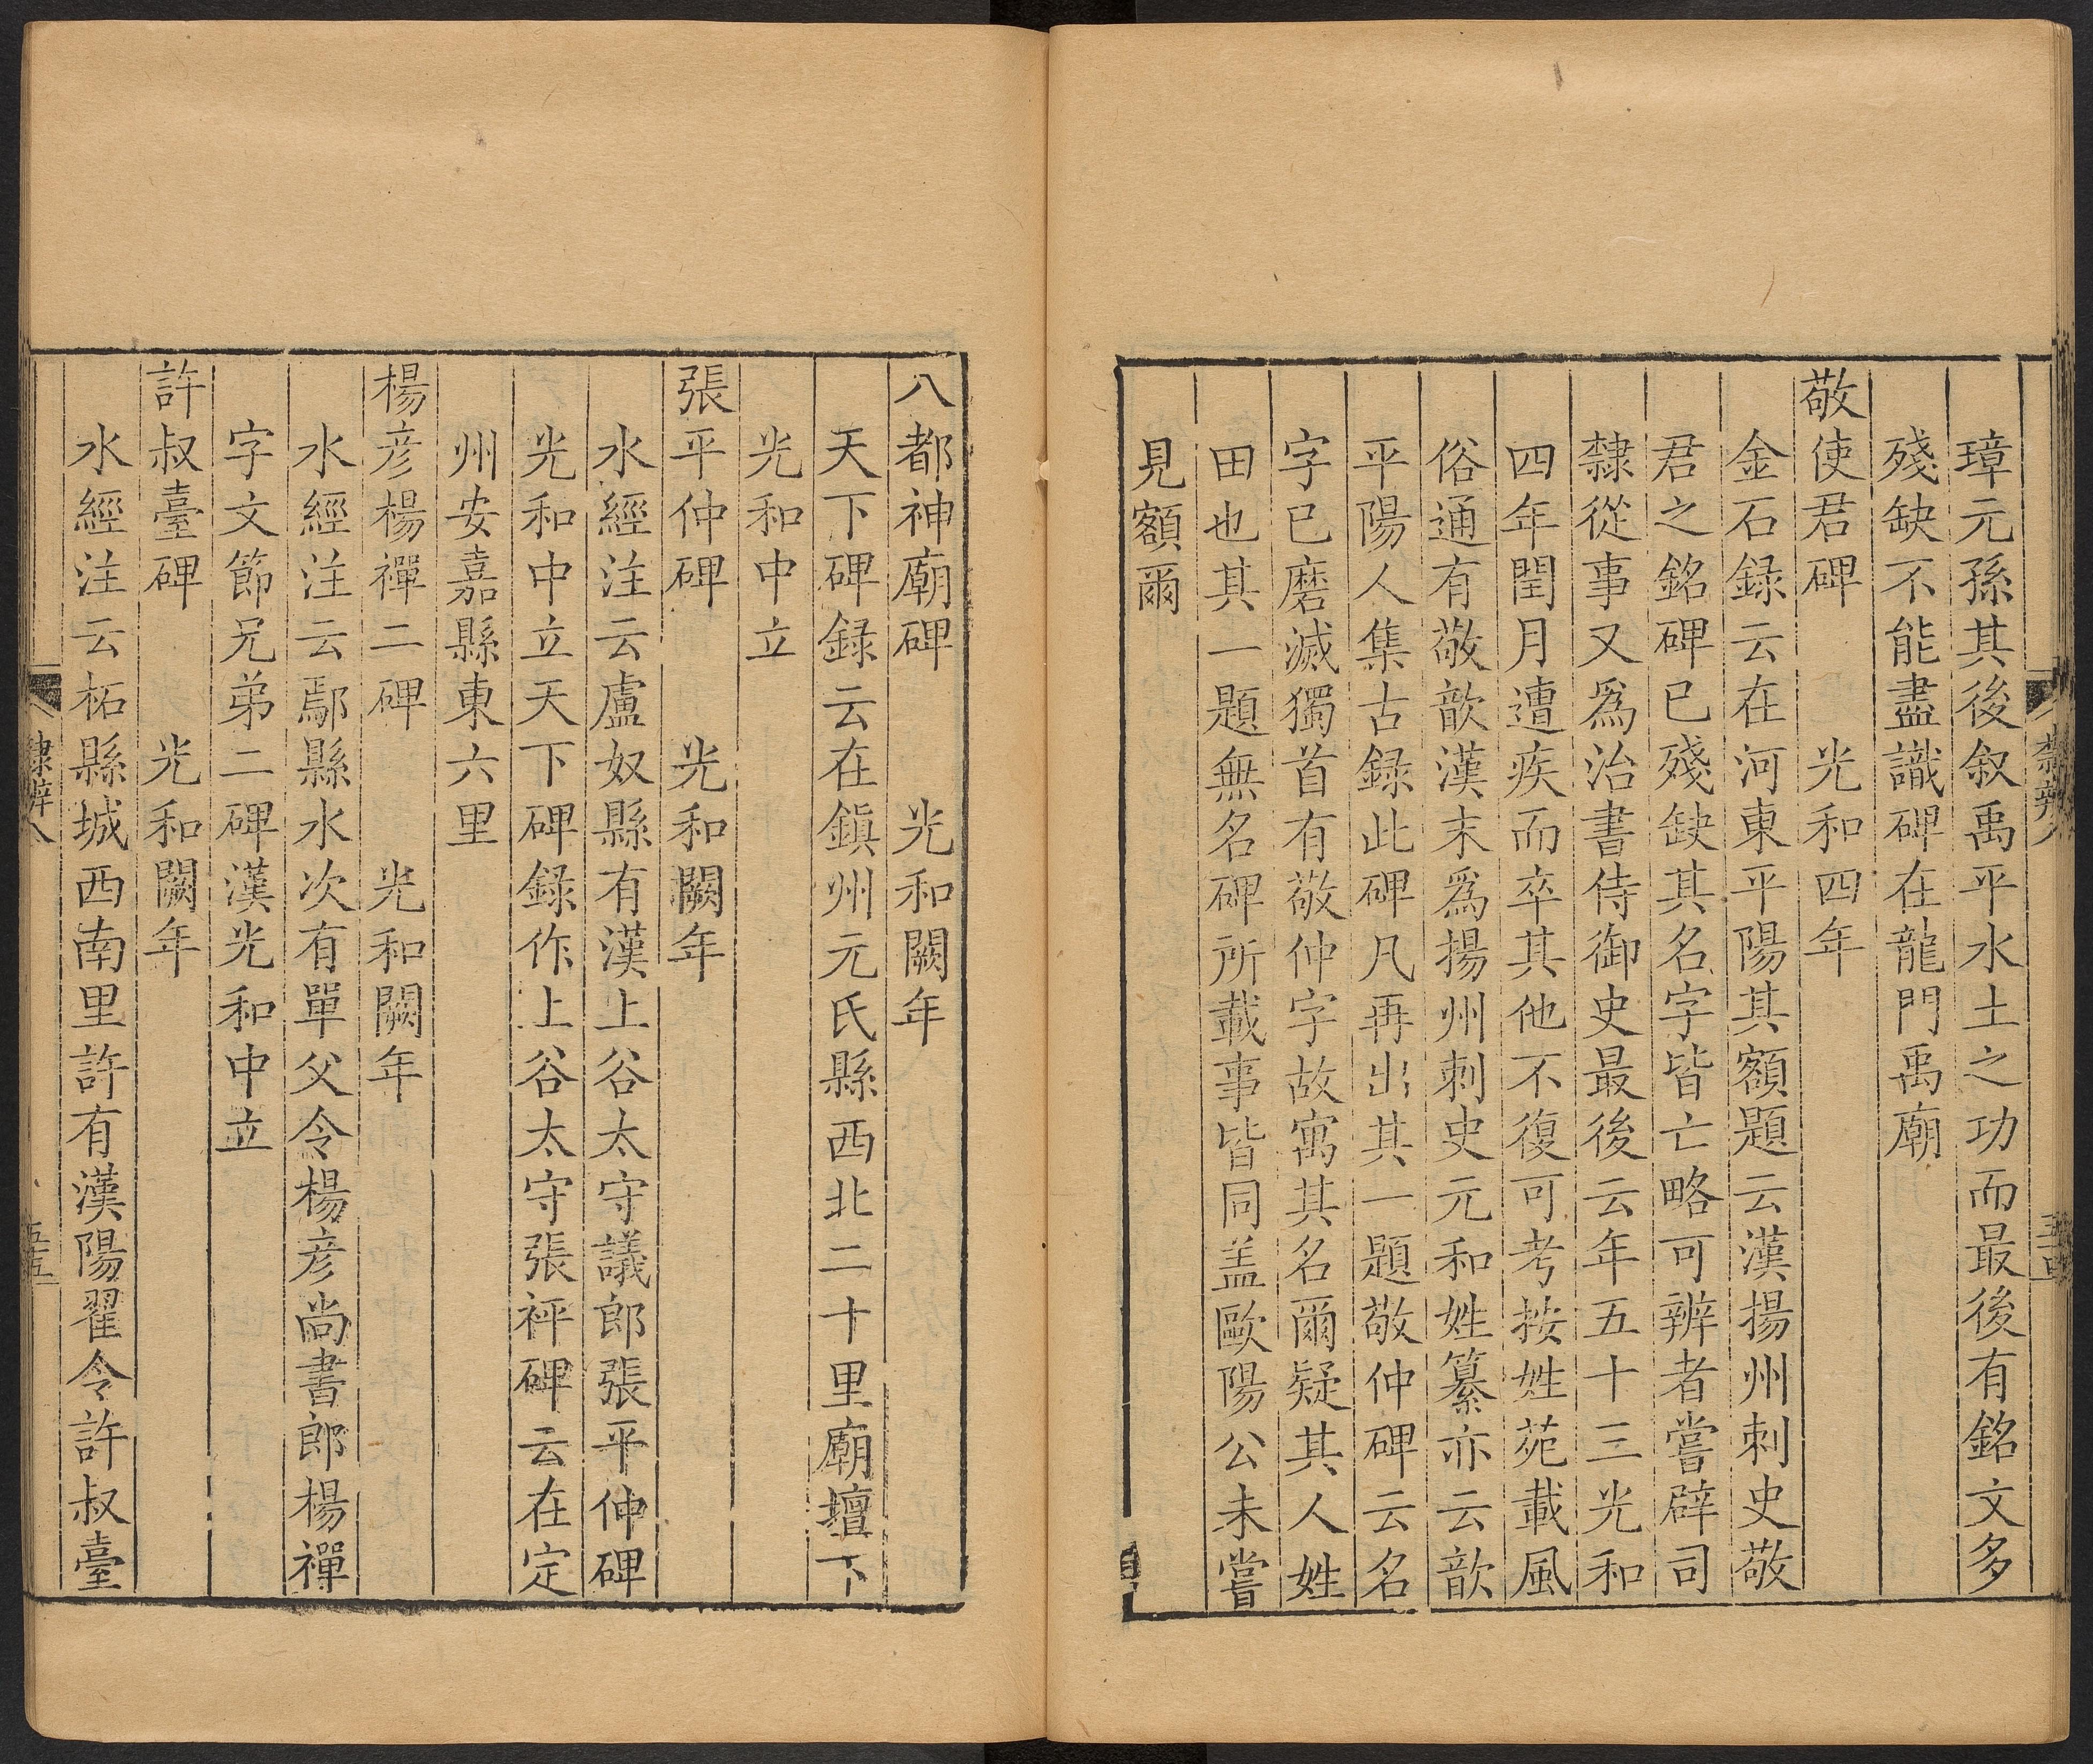 璋元孫其後叙禹平水土之功而最後有銘文多
殘缺不能盡識碑在龍門禹廟
敬使君碑　光和四年
金石録云在河東平陽其額題云漢揚州刺史敬
君之銘碑已殘缺其名字皆亡略可辨者嘗辟司
隸從事又爲治書侍御史最後云年五十三光和
四年閏月遭疾而卒其他不復可考按姓苑載風
俗通有敬歆漢末爲揚州刺史元和姓纂亦云歆
平陽人集古録此碑凡再出其一題敬仲碑云名
字已磨滅獨首有敬仲字故寓其名爾疑其人姓
田也其一題無名碑所載事皆同盖歐陽公未嘗
見額爾
八都神廟碑　光和闕年
天下碑録云在鎭州元氏縣西北二十里廟壇下
光和中立
張平仲碑　光和闕年
水經注云盧奴縣有漢上谷太守議郎張平仲碑
光和中立天下碑録作上谷太守張祥碑云在定
州安嘉縣東六里
楊彦楊禪二碑　光和闕年
水經注云鄢縣水次有單父令楊彦尚書郎楊禪
字文節兄弟二碑漢光和中立
許叔臺碑　光和闕年
水經注云柘縣城西南里許有漢陽翟令許叔臺
隸辨八
五五